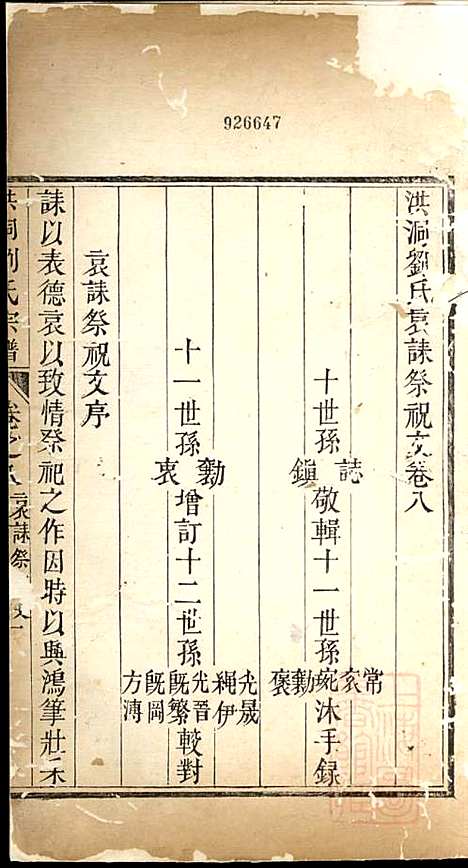 926647
洪洞劉氏哀誄祭祝文卷八
十世孫誌鎮敬輯十一世孫常衮琬勷褒沐手録
十一世孫勷衷增訂十二世孫光晟繩伊光晉既繁既岡方溥較對
哀誄祭祝文序
誄以表德哀以致情祭祀之作因時以興鴻筆壯采
洪洞劉氏宗譜 卷之八 哀誄祭